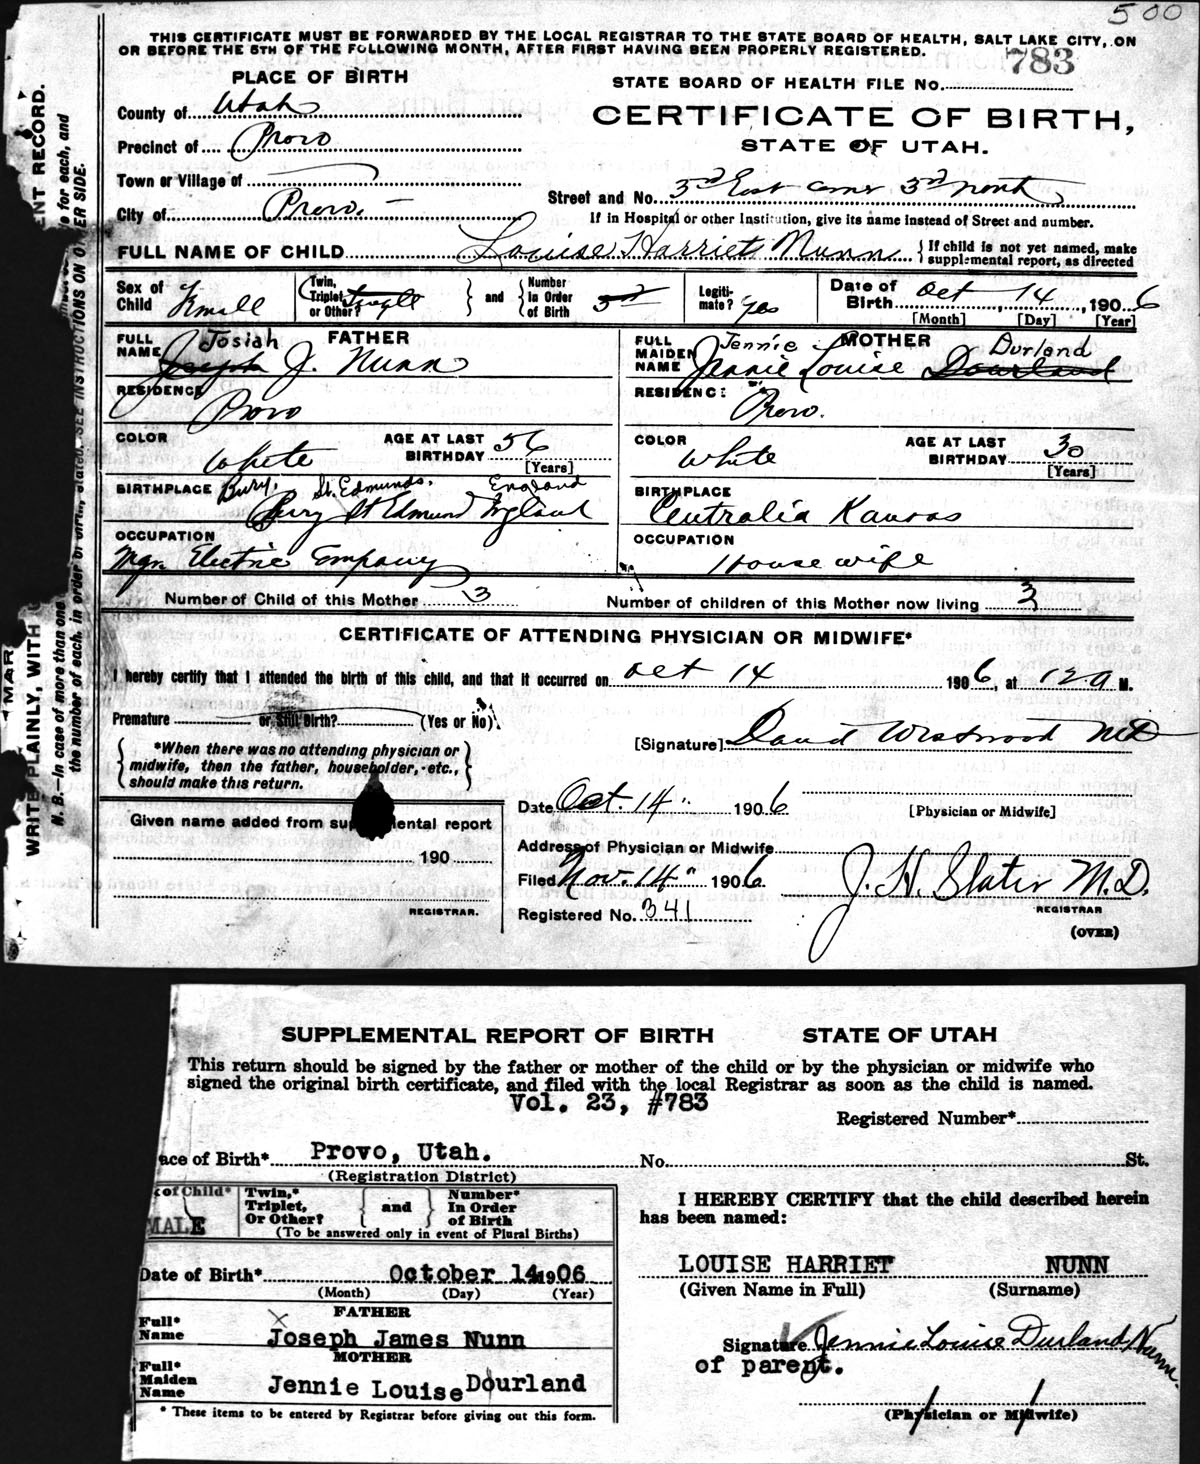 500
THIS CERTIFICATE MUST BE FORWARDED BY THE LOCAL REGISTRAR TO THE STATE BOARD OF HEALTH, SALT LAKE CITY, ON
OR BEFORE THE 5TH OF THE FOLLOWING MONTH, AFTER FIRST HAVING BEEN PROPERLY REGISTERED.
783
PLACE OF BIRTH
STATE BOARD OF HEALTH FILE No.
County of Utah
CERTIFICATE OF BIRTH,
Precinct of Provo
STATE OF UTAH.
Town or Village of
Street and No. 3rd East corner 3rd north
City of Provo.
If in Hospital or other Institution, give its name instead of Street and number.
FULL NAME OF CHILD Louise Harriet Nunn { If child is not yet named, make supplemental report, as directed
Sex of Child Female
Twin, Triplet or Other? Single } and { Number in Order of Birth 3rd
Legitimate? Yes
Date of Birth Oct 14, 1906
[Month] [Day] [Year]
FATHER
FULL NAME Josiah Joseph J. Nunn
RESIDENCE Provo
COLOR White AGE AT LAST BIRTHDAY 56
[Years]
BIRTHPLACE Bury, St. Edmunds, England
Bury St Edmund England
OCCUPATION
Mgr. Electric Company
MOTHER
FULL MAIDEN NAME Jennie Durland
Jennie Louise Dourland
RESIDENCE: Provo.
COLOR White AGE AT LAST BIRTHDAY 30
[Years]
BIRTHPLACE
Centralia Kansas
OCCUPATION
Housewife
Number of Child of this Mother 3 Number of children of this Mother now living 3
CERTIFICATE OF ATTENDING PHYSICIAN OR MIDWIFE*
I hereby certify that I attended the birth of this child, and that it occurred on Oct 14 1906, at 12 a M.
Premature or Still Birth? (Yes or No).
[Signature] David Westwood MD
{ *When there was no attending physician or
midwife, then the father, householder, etc.,
should make this return. }
Date Oct. 14" 1906
[Physician or Midwife]
Given name added from supplemental report
190
REGISTRAR.
Address of Physician or Midwife
Filed Nov. 14" 1906. J. H. Slater M.D.
REGISTRAR
Registered No. 341
(OVER)
ENT RECORD.
WRITE PLAINLY, WITH
MAR
N. B.—In case of more than one
e for each, and
the number of each, in order of birth, stated. SEE INSTRUCTIONS ON OTHER SIDE.
SUPPLEMENTAL REPORT OF BIRTH STATE OF UTAH
This return should be signed by the father or mother of the child or by the physician or midwife who
signed the original birth certificate, and filed with the local Registrar as soon as the child is named.
Vol. 23, #783
Registered Number*
ace of Birth* Provo, Utah. No. St.
(Registration District)
x of Child* MALE
Twin,* Triplet, Or Other? } and { Number* In Order of Birth
(To be answered only in event of Plural Births)
I HEREBY CERTIFY that the child described herein
has been named:
Date of Birth* October 14 1906
(Month) (Day) (Year)
LOUISE HARRIET NUNN
(Given Name in Full) (Surname)
FATHER
Full* Name Joseph James Nunn
MOTHER
Full* Maiden Name Jennie Louise Dourland
* These items to be entered by Registrar before giving out this form.
Signature Jennie Louise Durland Nunn.
of parent.
(Physician or Midwife)